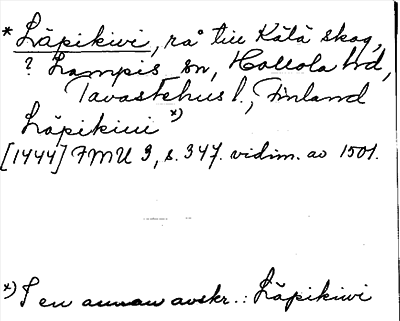 * Läpikivi, rå till Kätä skog,
? Lampis sn, Hollola hd,
Tavastehus l., Finland
Läpikiui x)
[1444] FMU 3, s. 347. vidim. av 1501.
x) I en annan avskr.: Läpikiwi